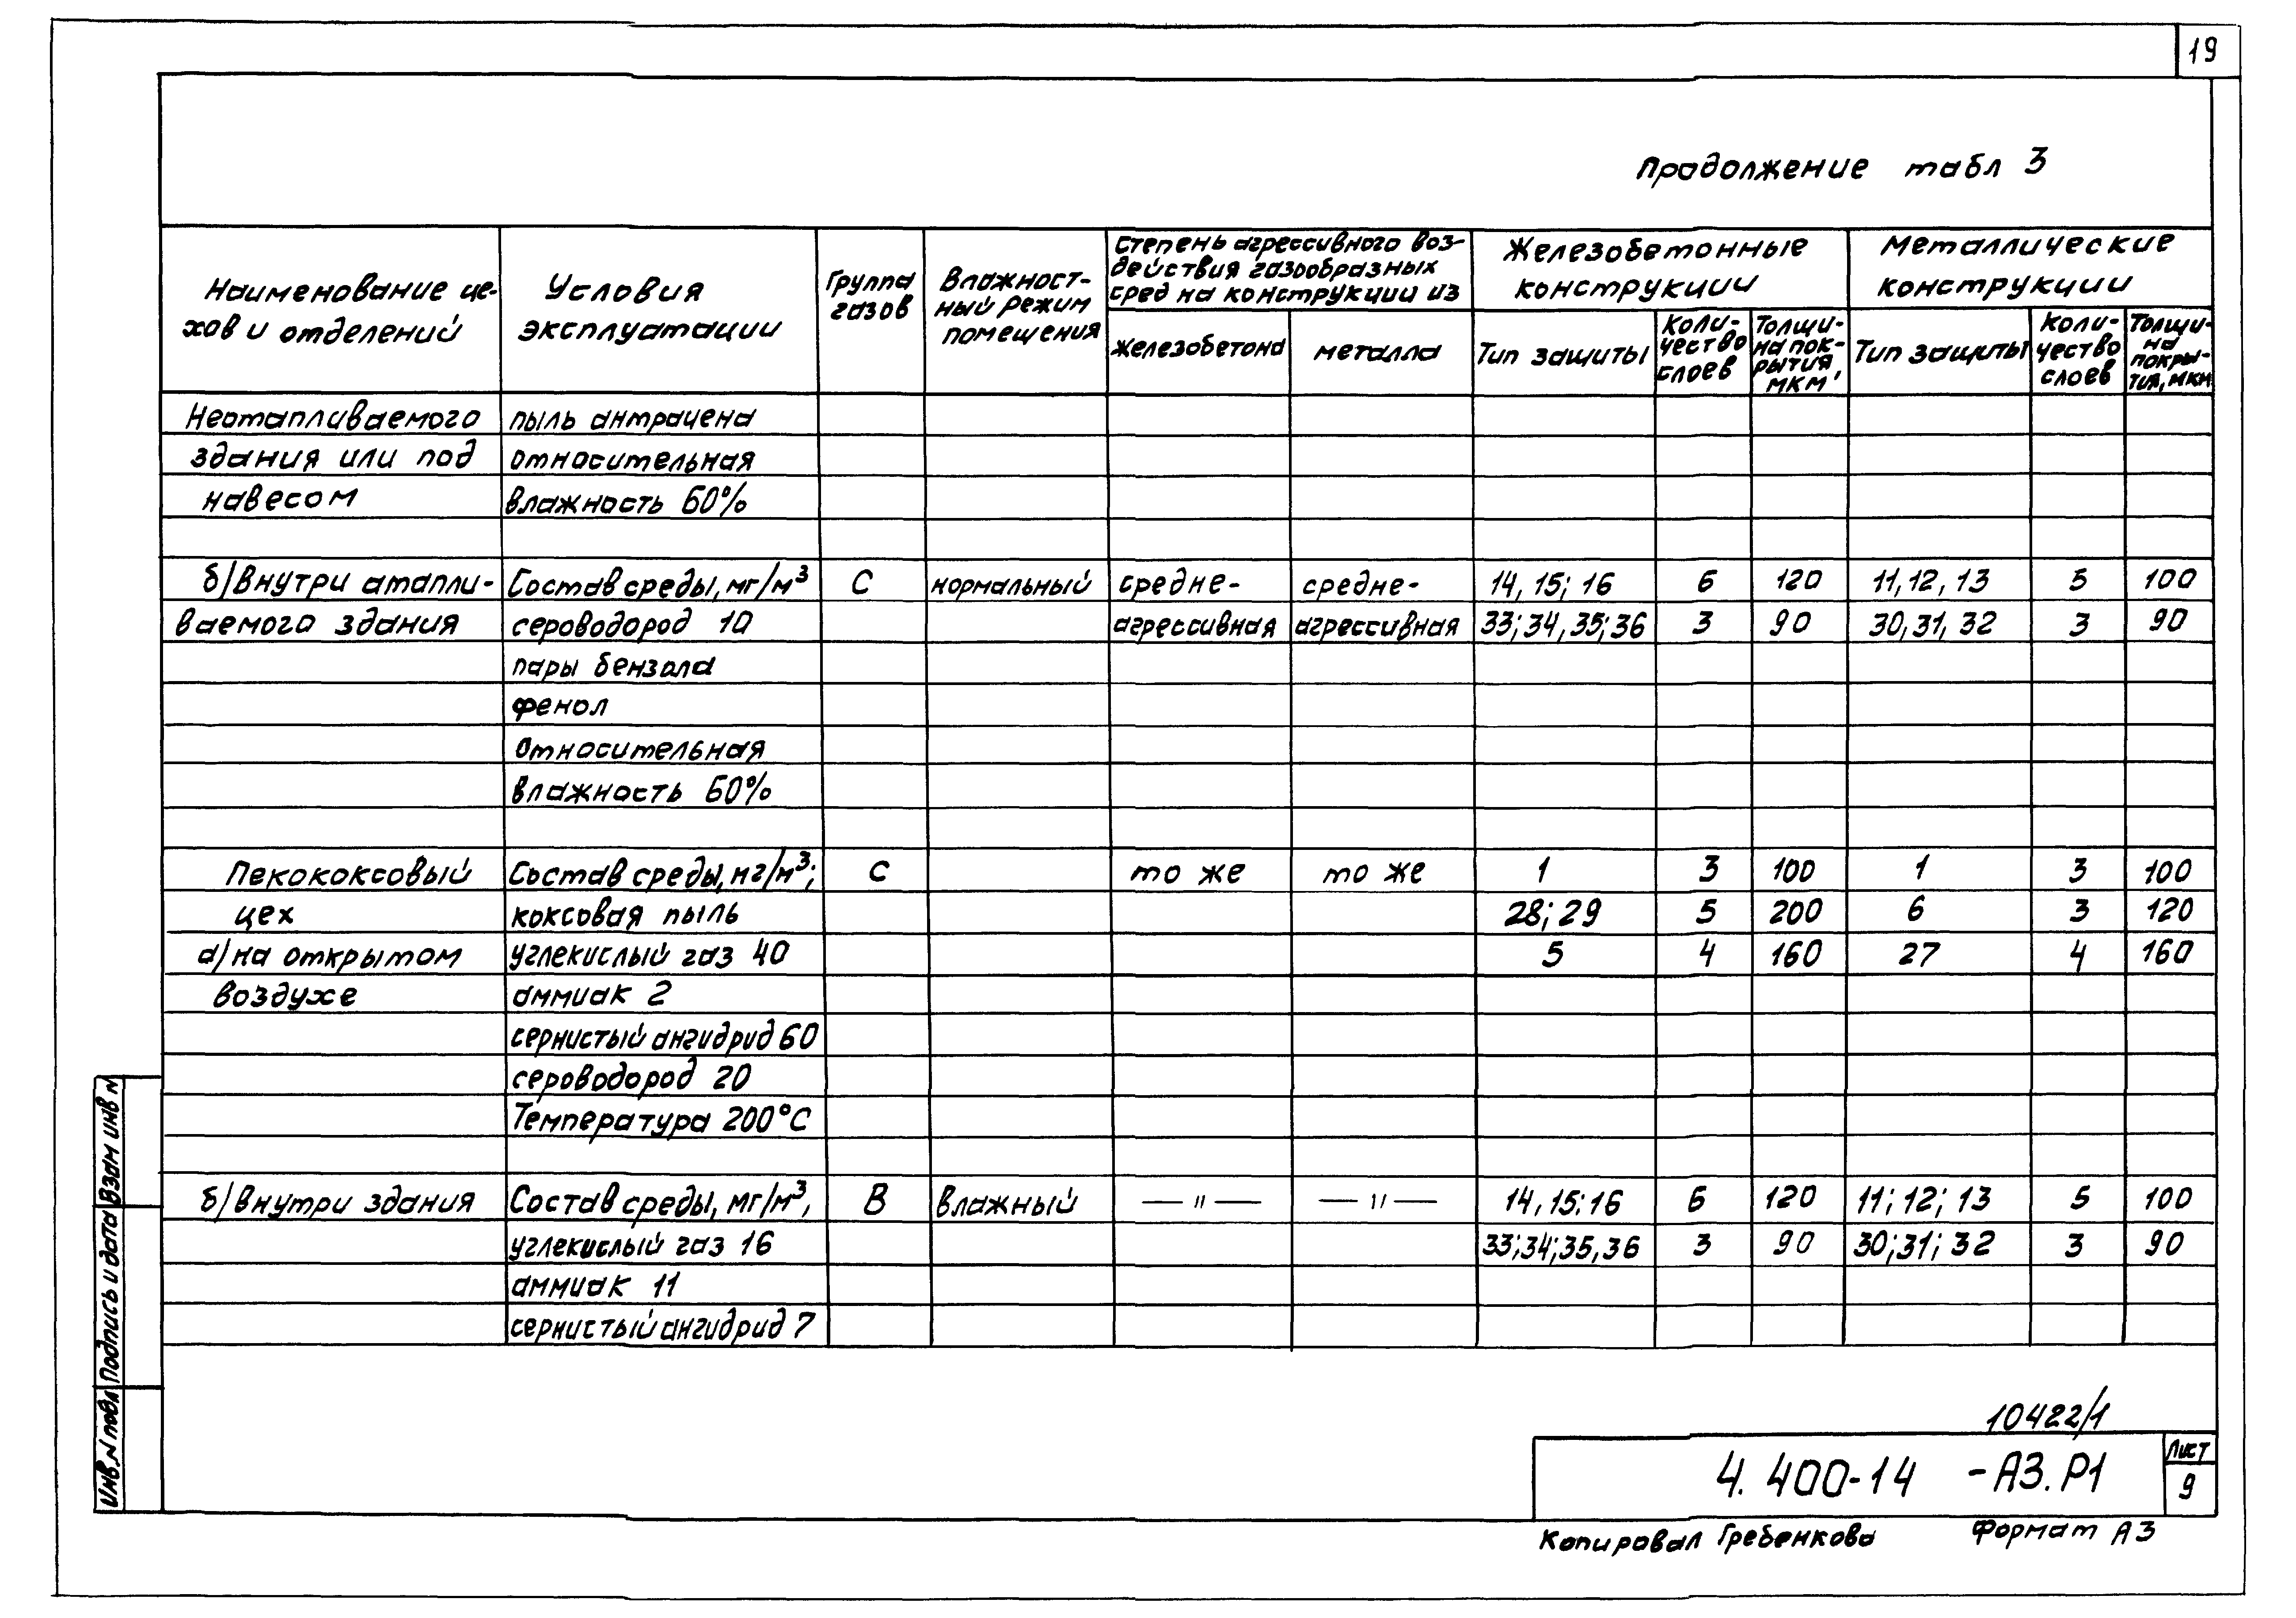 19
Продолжение табл 3
Наименование це-
хов и отделений
Условия
эксплуатации
Группа
газов
Влажност-
ный режим
помещения
Степень агрессивного воз-
действия газообразных
сред на конструкции из
железобетона
металла
Железобетонные
конструкции
Тип защиты
Коли-
чество
слоев
Толщи-
на пок-
рытия,
мкм
Металлические
конструкции
Тип защиты
Коли-
чество
слоев
Толщи-
на
покры-
тия, мкм
Неотапливаемого пыль антрацена
здания или под относительная
навесом влажность 60%
б/Внутри отапли- Состав среды, мг/м³ С нормальный средне- средне- 14, 15; 16 6 120 11, 12, 13 5 100
ваемого здания сероводород 10 агрессивная агрессивная 33; 34, 35; 36 3 90 30, 31, 32 3 90
пары бензола
фенол
относительная
влажность 60%
Пекококсовый Состав среды, мг/м³; С то же то же 1 3 100 1 3 100
цех коксовая пыль 28; 29 5 200 6 3 120
а/на открытом углекислый газ 40 5 4 160 27 4 160
воздухе аммиак 2
сернистый ангидрид 60
сероводород 20
Температура 200°С
б/Внутри здания Состав среды, мг/м³, В влажный — " — — " — 14, 15; 16 6 120 11; 12; 13 5 100
углекислый газ 16 33; 34; 35, 36 3 90 30; 31; 32 3 90
аммиак 11
сернистый ангидрид 7
Взам инв N
Подпись и дата
Инв. N подл
10422/1
4.400-14 -А3.Р1
Лист
9
Копировал Гребенкова Формат А3